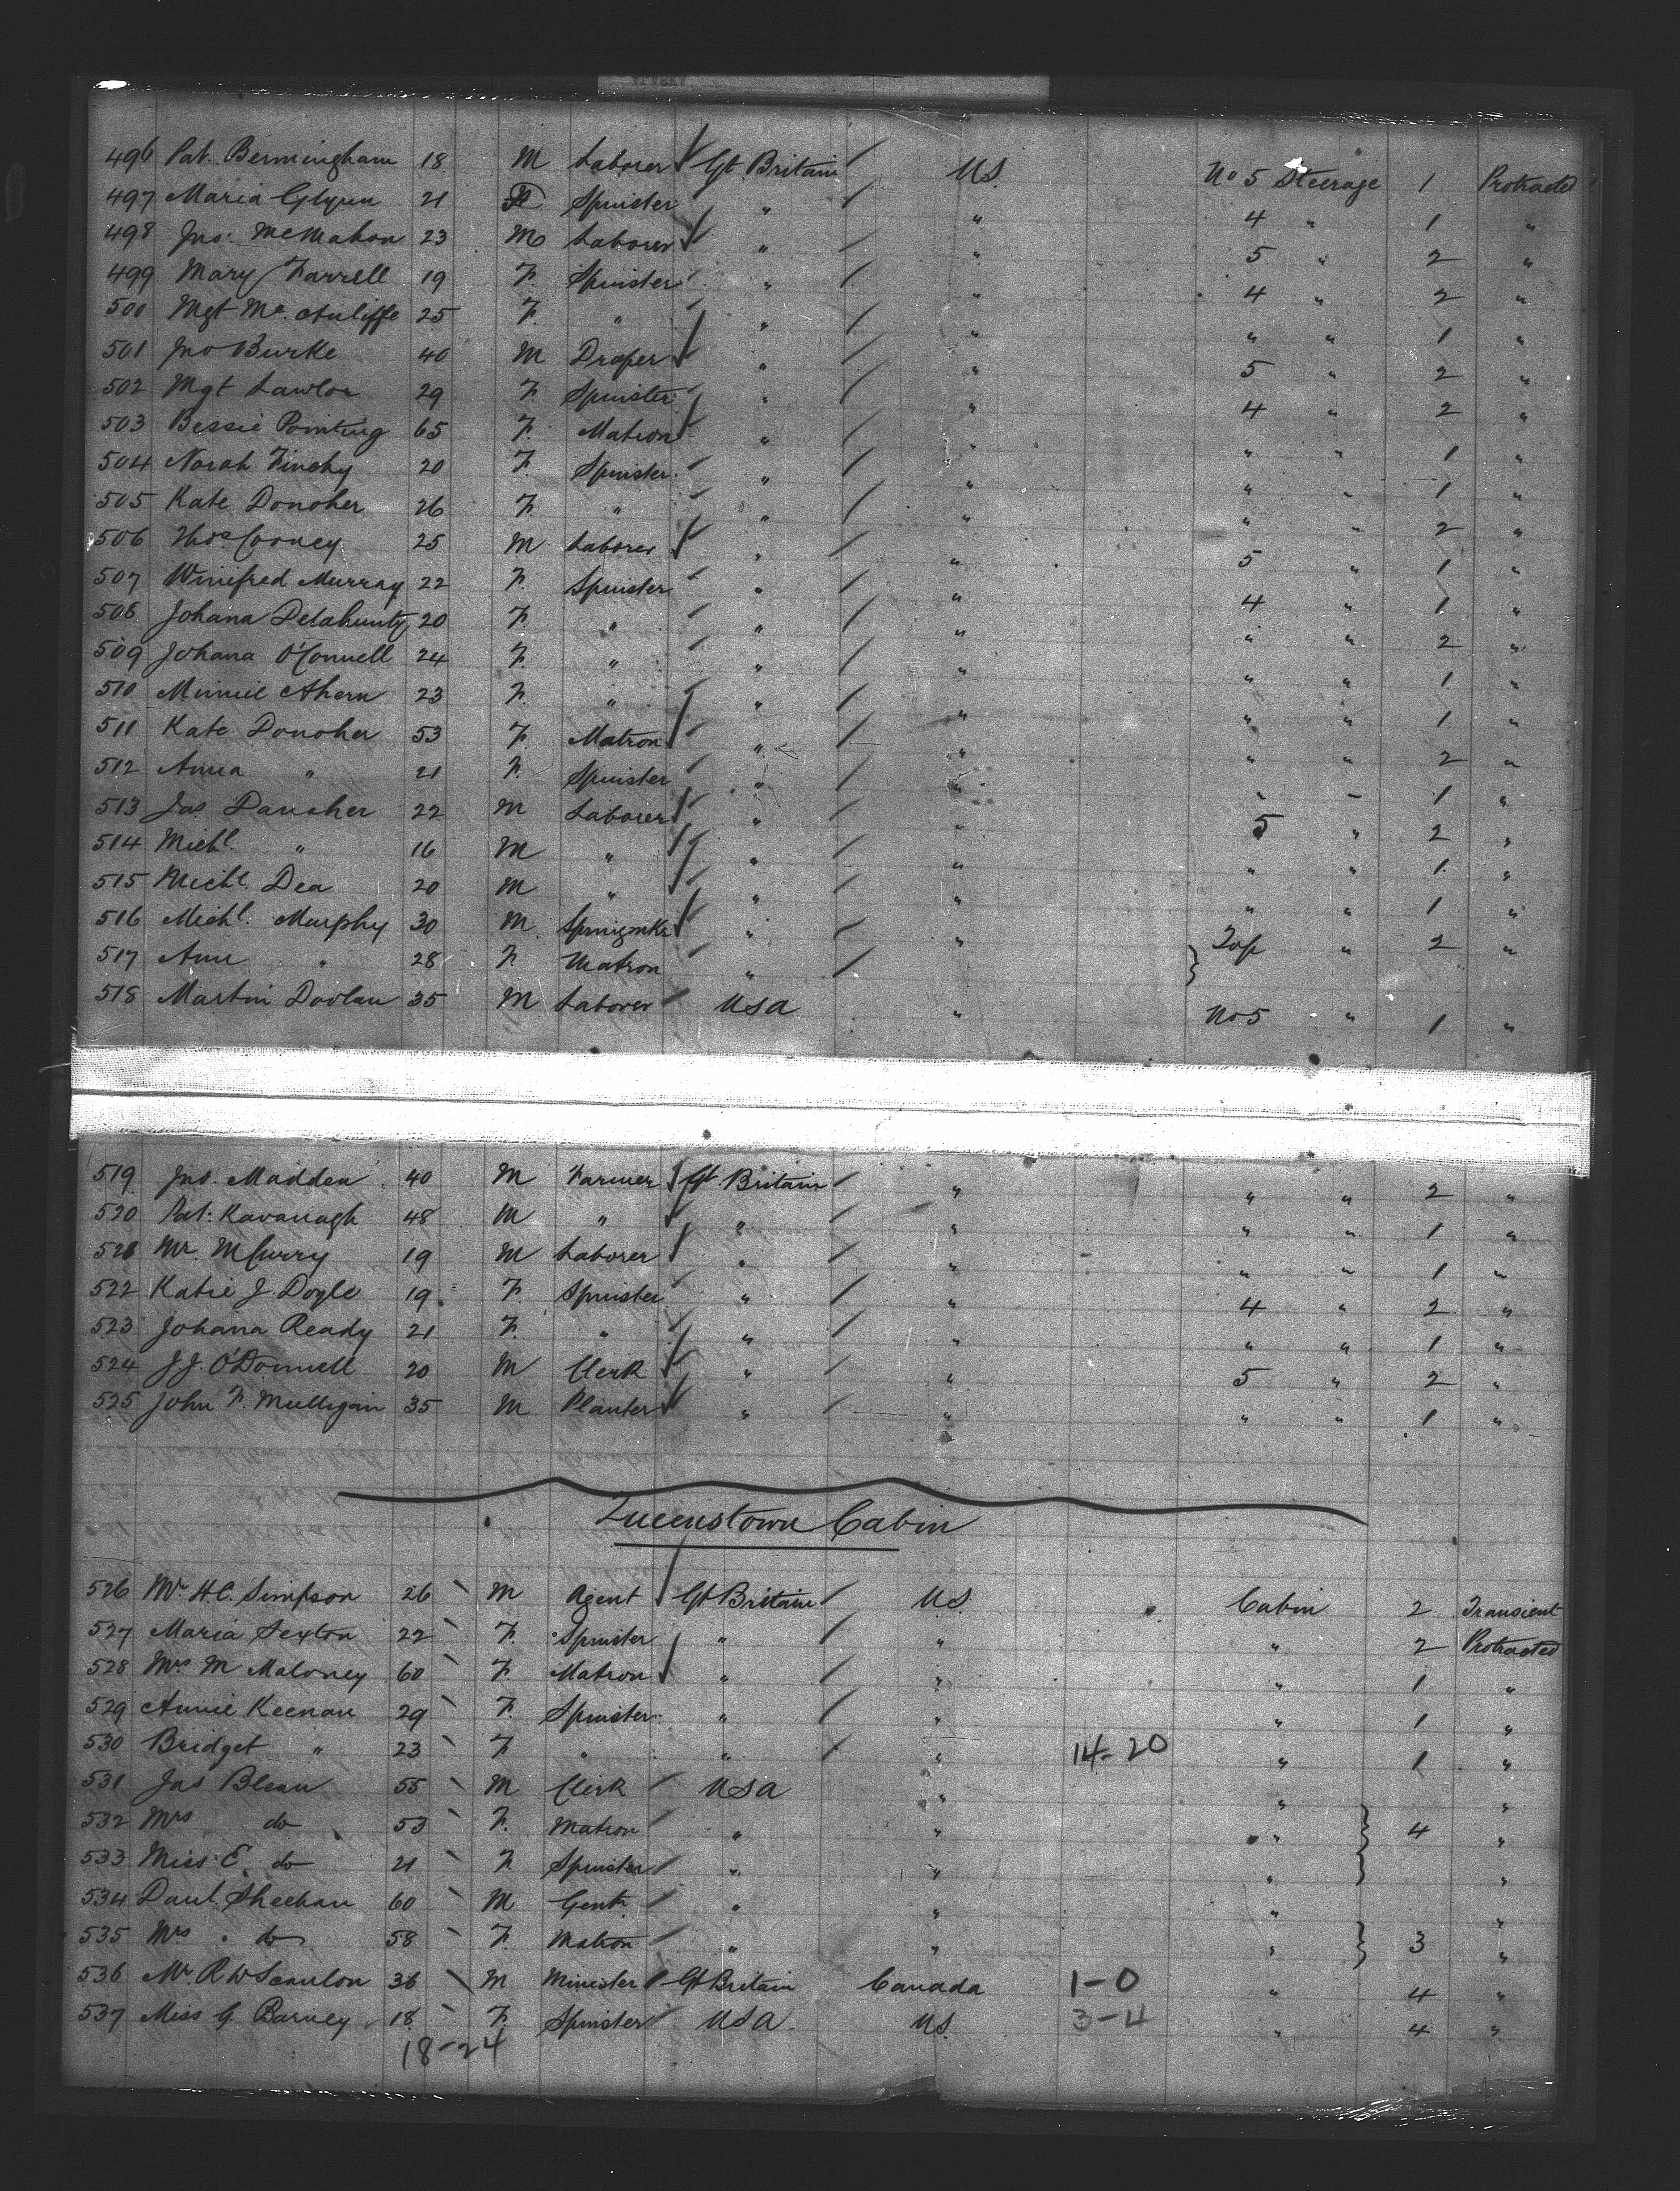 496 Pat. Bermingham 18 M Laborer Gt. Britain US No 5 Steerage 1 Protracted
497 Maria Glynn 21 F Spinster " " 4 " 1 "
498 Jno. McMahon 23 M Laborer " " 5 " 2 "
499 Mary Farrell 19 F. Spinster " " 4 " 2 "
500 Mgt Mc.Auliffe 25 F. " " " " " 1 "
501 Jno Burke 40 M Draper " " 5 " 2 "
502 Mgt Lawlor 29 F. Spinster " " 4 " 2 "
503 Bessie Pointing 65 F. Matron " " " " 1 "
504 Norah 20 F. Spinster " " " " 1 "
505 Kate Donoher 26 F. " " " " " 2 "
506 Thos Cooney 25 M Laborer " " 5 " 1 "
507 Winifred Murray 22 F. Spinster " " 4 " 1 "
508 Johana Delahunty 20 F. " " " " " 2 "
509 Johana O'Connell 24 F. " " " " " 1 "
510 Minnie Ahern 23 F. " " " " " 1 "
511 Kate Donoher 53 F. Matron " " " " 2 "
512 Anna " 21 F. Spinster " " " " 1 "
513 Jas Danaher 22 M Laborer " " 5 " 2 "
514 Michl. " 16 M " " " " " 1 "
515 Michl. Dea 20 M " " " " " 1 "
516 Michl. Murphy 30 M " " Top " 2 "
517 Ann " 28 F. Matron "
518 Martin Doolan 35 M Laborer USA " No 5 " 1 "
519 Jno. Madden 40 M Farmer Gt. Britain " " " 2 "
520 Pat: Kavanagh 48 M " " " " " 1 "
521 Mr. McCurry 19 M Laborer " " " " 1 "
522 Katie J. Doyle 19 F. Spinster " " 4 " 2 "
523 Johana Ready 21 F. " " " " " 1 "
524 J.J. O'Donnell 20 M Clerk " " 5 " 2 "
525 John F. Mulligan 35 M Planter " " " " 1 "
Queenstown Cabin
526 Mr H.C. Simpson 26 M Agent Gt Britain US Cabin 2 Transient
527 Maria Sexton 22 F. Spinster " " " 2 Protracted
528 Mrs M Maloney 60 F. Matron " " " 1 "
529 Annie Keenan 29 F. Spinster " " " 1 "
530 Bridget " 23 F. " " " 14-20 " 1 "
531 Jas Blean 55 M Clerk USA " " "
532 Mrs do 53 F. Matron " " " 4 "
533 Miss E. do 21 F. Spinster " " " "
534 Danl. Sheehan 60 M Gent. " " " "
535 Mrs do 58 F. Matron " " " 3 "
536 Mr R W Scanlon 36 M Minister Gt Britain Canada 1-0 " 4 "
537 Miss G. Barney 18 F. Spinster USA US. 3-4 " 4 "
18-24